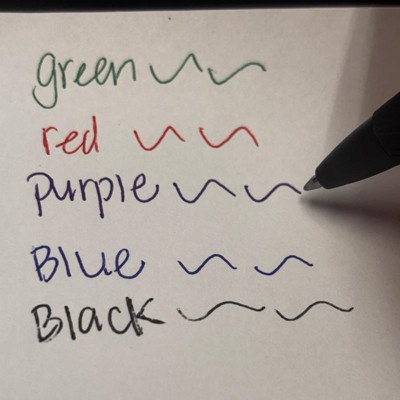 green
red
purple
Blue
Black